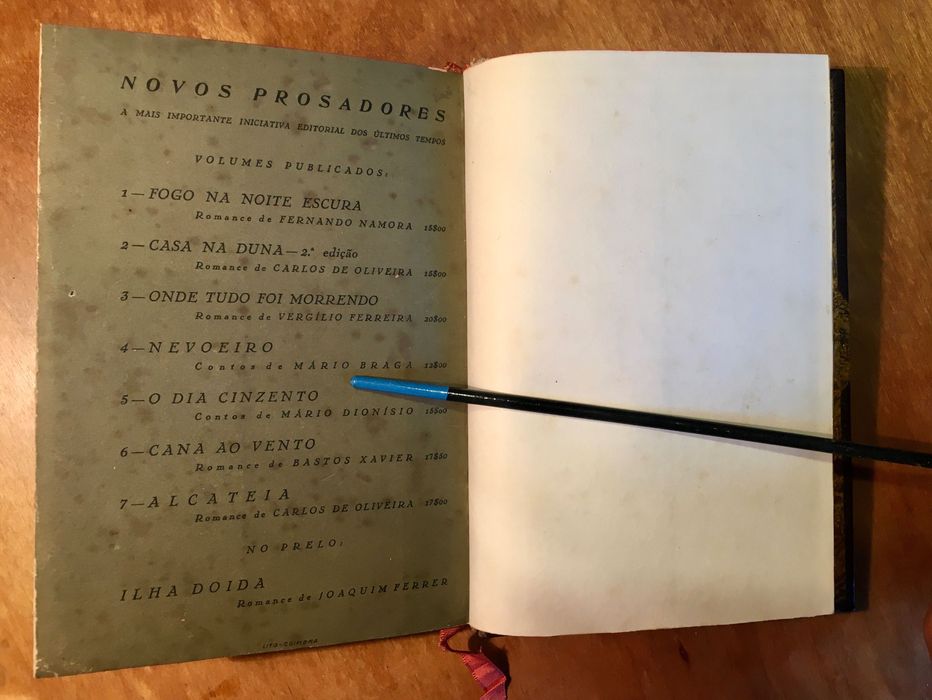 NOVOS PROSADORES
A MAIS IMPORTANTE INICIATIVA EDITORIAL DOS ÚLTIMOS TEMPOS
VOLUMES PUBLICADOS:
1—FOGO NA NOITE ESCURA
Romance de FERNANDO NAMORA 15$00
2—CASA NA DUNA—2.ª edição
Romance de CARLOS DE OLIVEIRA 15$00
3—ONDE TUDO FOI MORRENDO
Romance de VERGÍLIO FERREIRA 20$00
4—NEVOEIRO
Contos de MÁRIO BRAGA 12$00
5—O DIA CINZENTO
Contos de MÁRIO DIONÍSIO 15$00
6—CANA AO VENTO
Romance de BASTOS XAVIER 17$50
7—ALCATEIA
Romance de CARLOS DE OLIVEIRA 17$00
NO PRELO:
ILHA DOIDA
Romance de JOAQUIM FERRER
LITO-COIMBRA